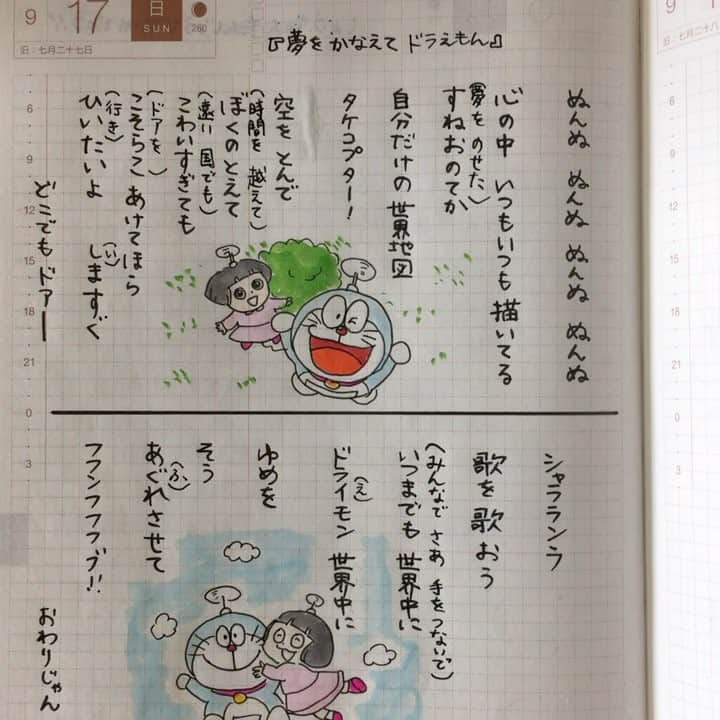 9 17 日 SUN 260
旧：七月二十七日
『夢を かなえて ドラえもん』
ぬんぬ ぬんぬ ぬんぬ ぬんぬ
心の中 いつもいつも 描いてる
(夢を のせた)
すねおのてか
自分だけの 世界地図
タケコプター！
空を とんで
(時間を 越えて)
ぼくのとえて
(遠い 国でも)
こわいすぎても
(ドアを)
こそらく あけてほら
(行き)
ひいたいよ しますぐ
(い)
どこでもドアー
6
9
12
15
18
21
0
3
シャララララ
歌を 歌おう
(みんなで さあ 手を つないで)
いつまでも 世界中に
(え)
ドライモン 世界中に
ゆめを
そう
(ふ)
あぐれさせて
フランフフフ!!
おわりじゃん
9 1
旧：七月二十八
6
9
12
15
18
0
3